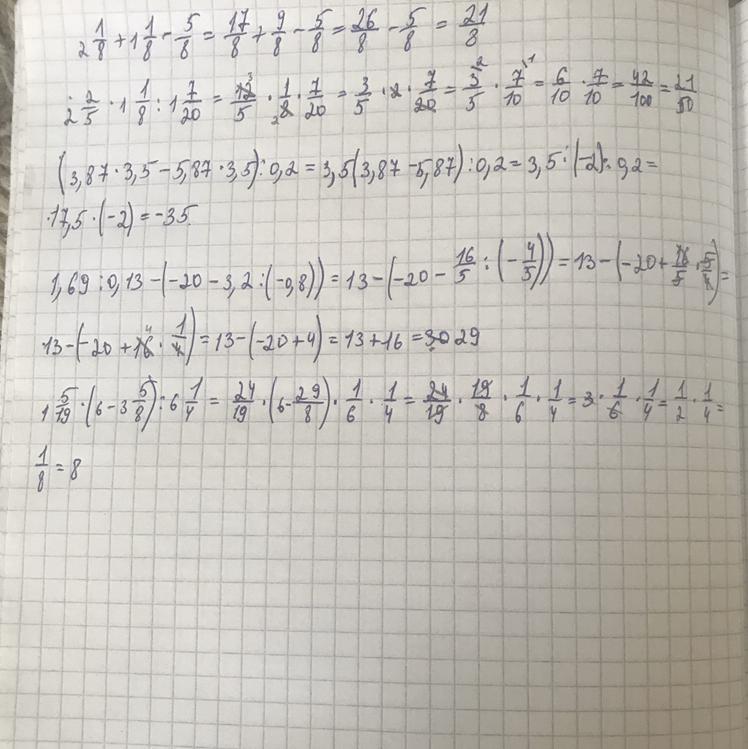 2 1/8 + 1 1/8 - 5/8 = 17/8 + 9/8 - 5/8 = 26/8 - 5/8 = 21/8
2 2/5 · 1 1/8 : 1 7/20 = 12/5 · 1/8 · 7/20 = 3/5 · 2 · 7/20 = 3/5 · 7/10 = 6/10 · 7/10 = 42/100 = 21/50
(3,87 · 3,5 - 5,87 · 3,5) : 0,2 = 3,5(3,87 - 5,87) : 0,2 = 3,5 : (-2) : 0,2 =
·17,5 · (-2) = -35
1,69 : 0,13 - (-20 - 3,2 : (-0,8)) = 13 - (-20 - 16/5 : (-4/5)) = 13 - (-20 + 16/5 · 5/4) =
13 - (-20 + 16 · 1/4) = 13 - (-20 + 4) = 13 + 16 = 29
1 5/19 · (6 - 3 5/8) : 6 1/4 = 24/19 · (6 - 29/8) · 1/6 · 1/4 = 24/19 · 19/8 · 1/6 · 1/4 = 3 · 1/6 · 1/4 = 1/2 · 1/4 =
1/8 = 8